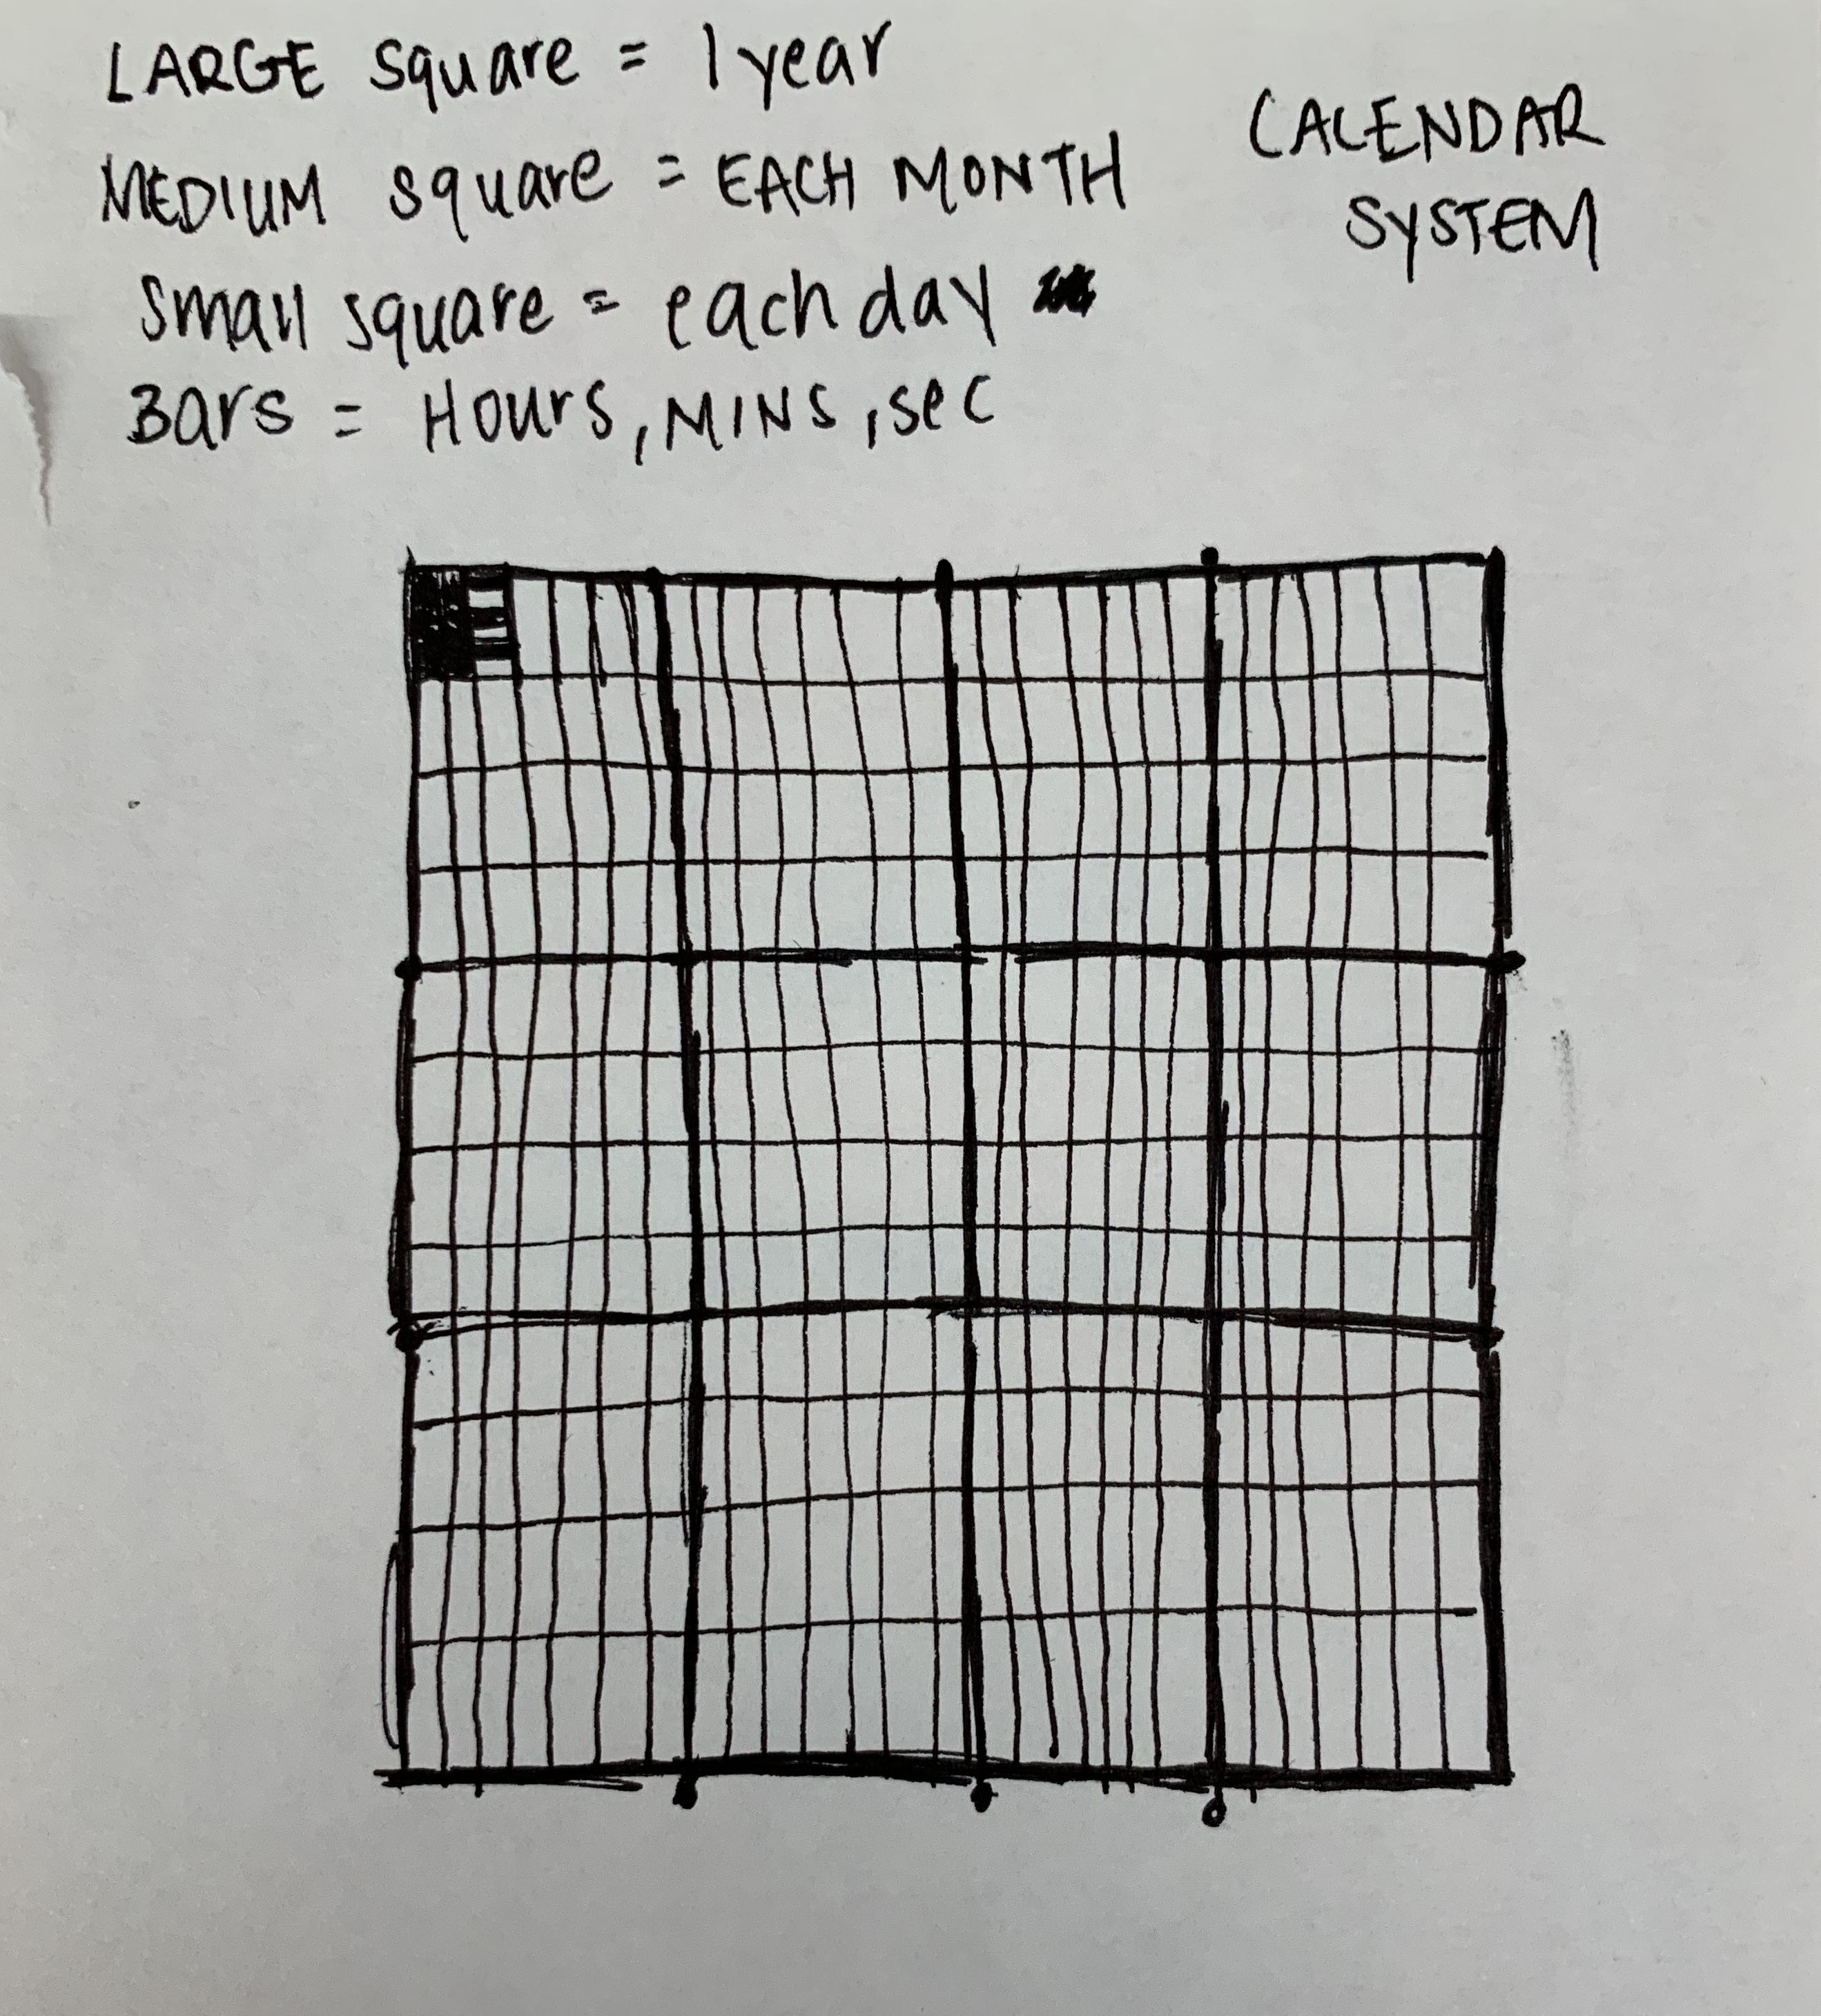 LARGE square = 1 year
MEDIUM square = EACH MONTH
small square = each day
Bars = Hours, MINS, sec
CALENDAR
SYSTEM